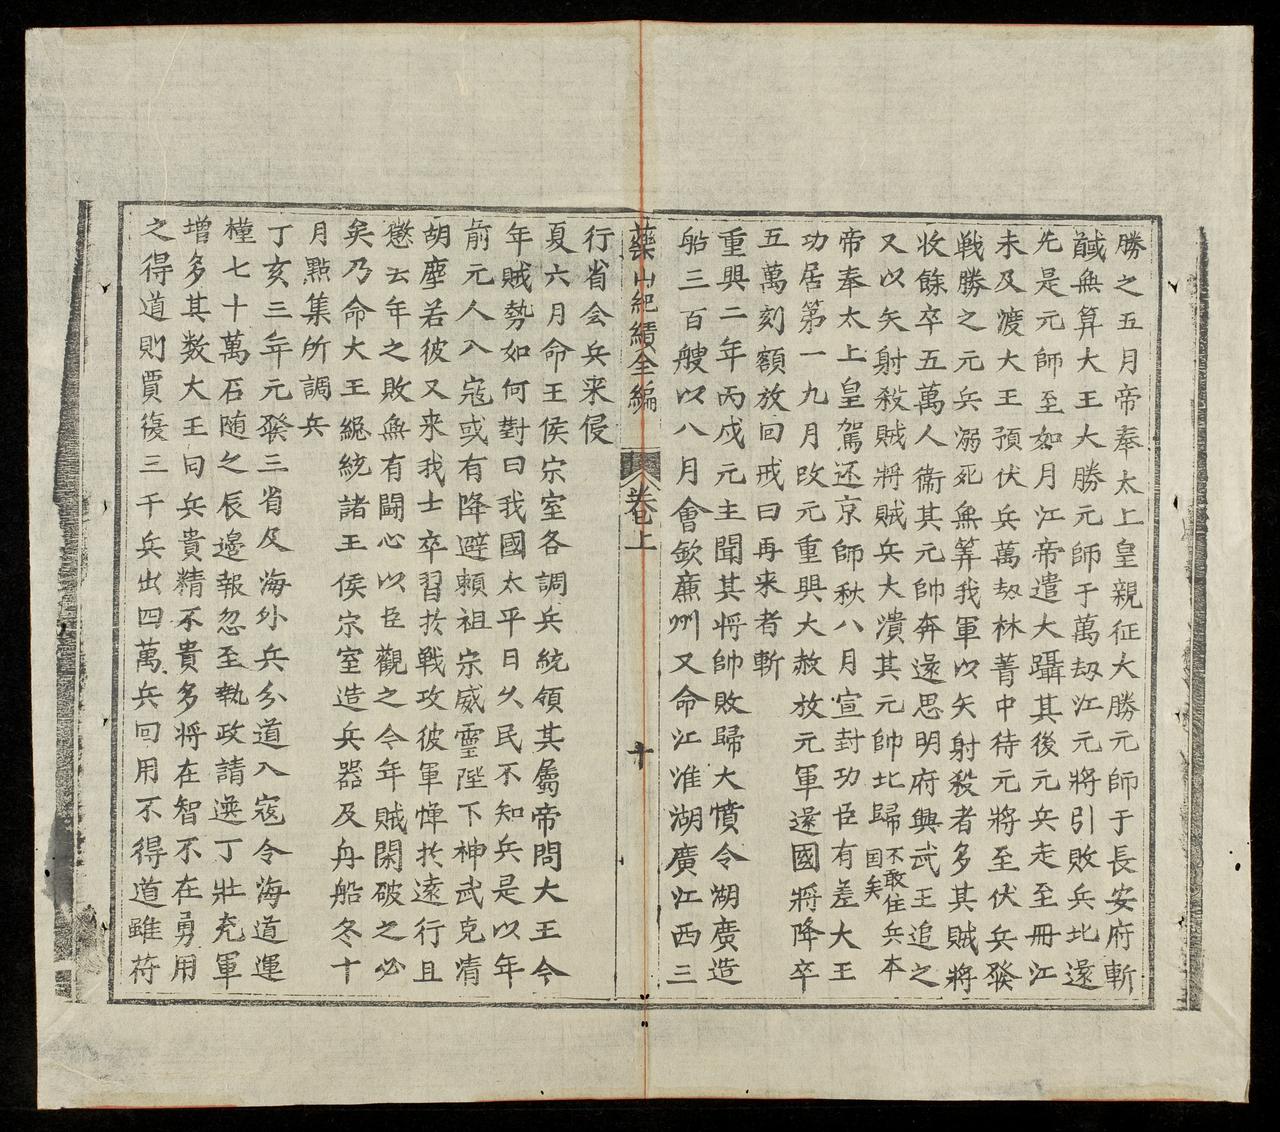 勝之五月帝奉太上皇親征大勝元師于長安府斬
馘無算大王大勝元師于萬刼江元將引敗兵北還
先是元師至如月江帝遣大躡其後元兵走至冊江
未及渡大王預伏兵萬刼林菁中待元將至伏兵發
戰勝之元兵溺死無筭我軍以矢射殺者多其賊將
收餘卒五萬人衞其元帥奔還思明府興武王追之
又以矢射殺賊將賊兵大潰其元帥北歸不敢住兵本国矣
帝奉太上皇駕还京師秋八月宣封功臣有差大王
功居第一九月改元重興大赦放元軍還國將降卒
五萬刻額放回戒曰再来者斬
重興二年丙戌元主聞其將帥敗歸大憤令湖廣造
船三百艘以八月會欽廉州又命江淮湖廣江西三
藥山紀績全編 卷上 十
行省会兵来侵
夏六月命王侯宗室各調兵統領其屬帝問大王令
年賊勢如何對曰我國太平日久民不知兵是以年
前元人入寇或有降避賴祖宗威靈陛下神武克清
胡塵若彼又来我士卒習於戰攻彼軍惮於遠行且
懲去年之敗無有鬪心以臣觀之令年賊閑破之必
矣乃命大王綂統諸王侯宗室造兵器及舟船冬十
月點集所調兵
丁亥三年元發三省及海外兵分道入寇令海道運
糧七十萬石随之辰邊報忽至執政請選丁壯充軍
增多其数大王曰兵貴精不貴多将在智不在勇用
之得道則賈復三千兵出四萬兵回用不得道雖苻